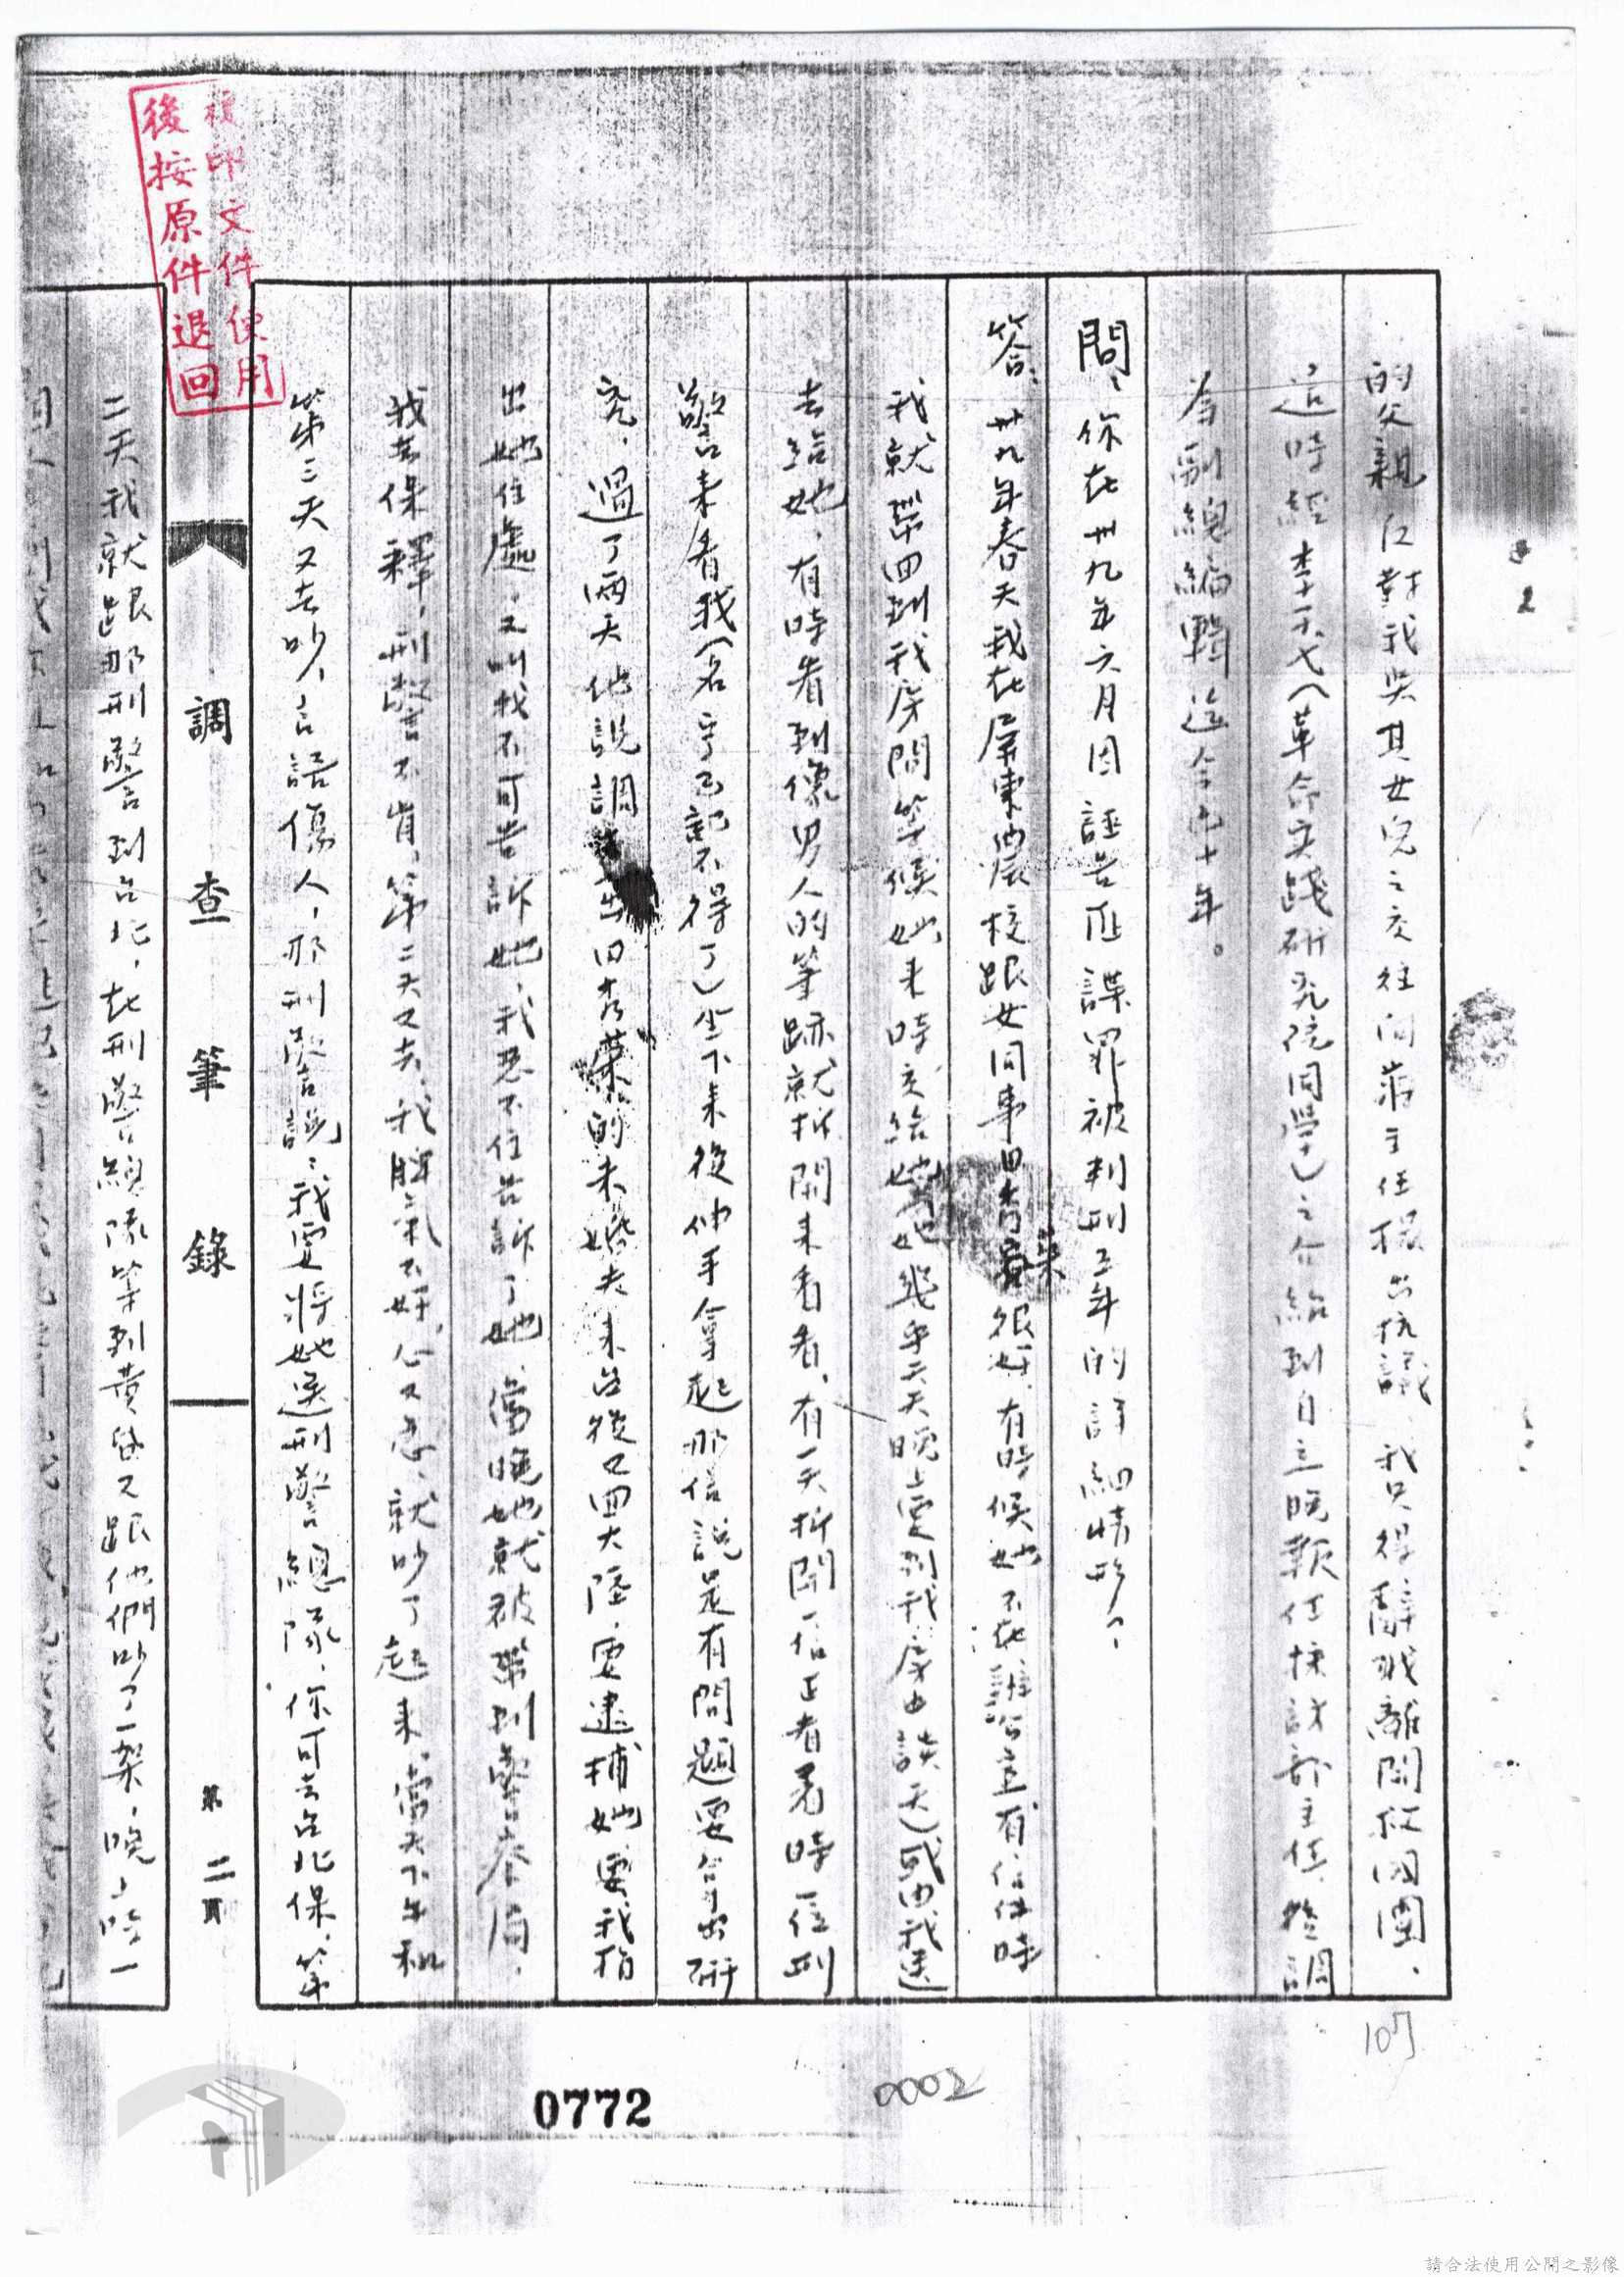 的父親仅對我與其女兒之交往向蔣主任提出抗議、我只得辭職離開救国團、
這時經李天弋(革命实踐研究院同學)之介紹到自立晚報任採訪部主任、整調
為副總編輯迄今已十年。
問、你在卅九年六月因誣告匪諜罪被判刑三年的詳細情形?
答、卅九年春天我在屏東農校跟女同事田秀菜很好、有時候她不在辦公室有信件時
我就帶回到我房間等候她來時交給她(她幾乎天天晚上要到我房由談天)或由我送
去給她、有時看到像男人的筆跡就拆開來看看、有一天拆開一信正看着時一位刑
警來看我(名字已記不得了)坐下來後伸手拿起那信說是有問題要拿出研
究,過了兩天他說調查出田秀菜的未婚夫來台後又回大陸,要逮捕她、要我指
出她住處、又叫我不可告訴她、我忍不住告訴了她、當晚她就被帶到警察局、
我去保釋,刑警不肯、第二天又去、我脾氣不好、心又急、就吵了起來、當天下午和
第三天又去吵,言語傷人,那刑警說:我要將她送刑警總隊、你可去台北保、第
調查筆錄
第二頁
二天我就跟那刑警到台北,在刑警總隊等到黄昏又跟他們吵了一架,晚上時一
複印文件使用
後按原件退回
107
0772
0002
請合法使用公開之影像